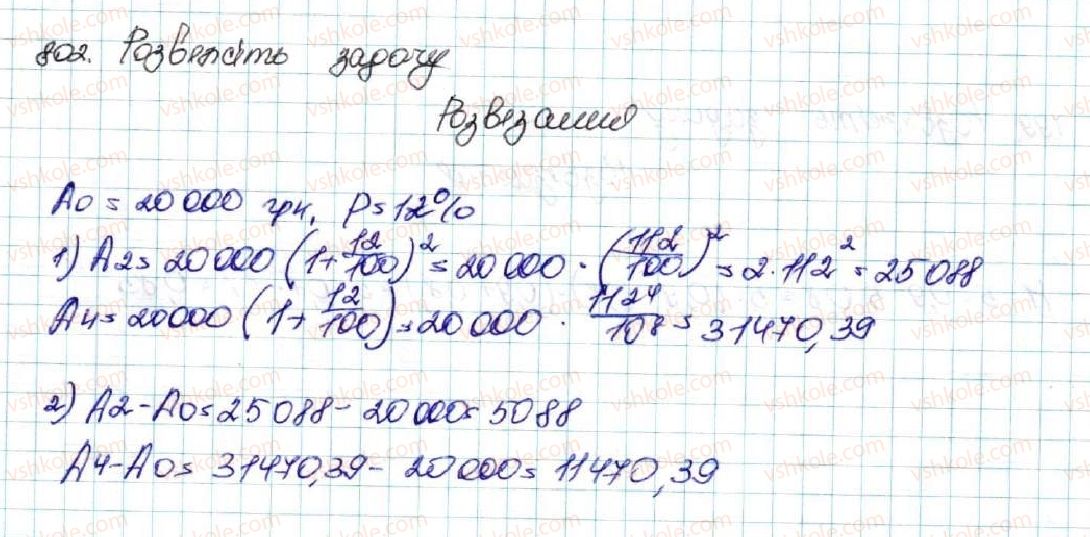 802. Розвежіть задачу
Розвезання
A0 = 20 000 грн, P = 12%
1) A2 = 20 000 (1 + 12/100)² = 20 000 · (112/100)² = 2 · 112² = 25 088
A4 = 20 000 (1 + 12/100) = 20 000 · 112⁴/10⁸ = 31470,39
2) A2 - A0 = 25 088 - 20 000 = 5088
A4 - A0 = 31470,39 - 20 000 = 11470,39